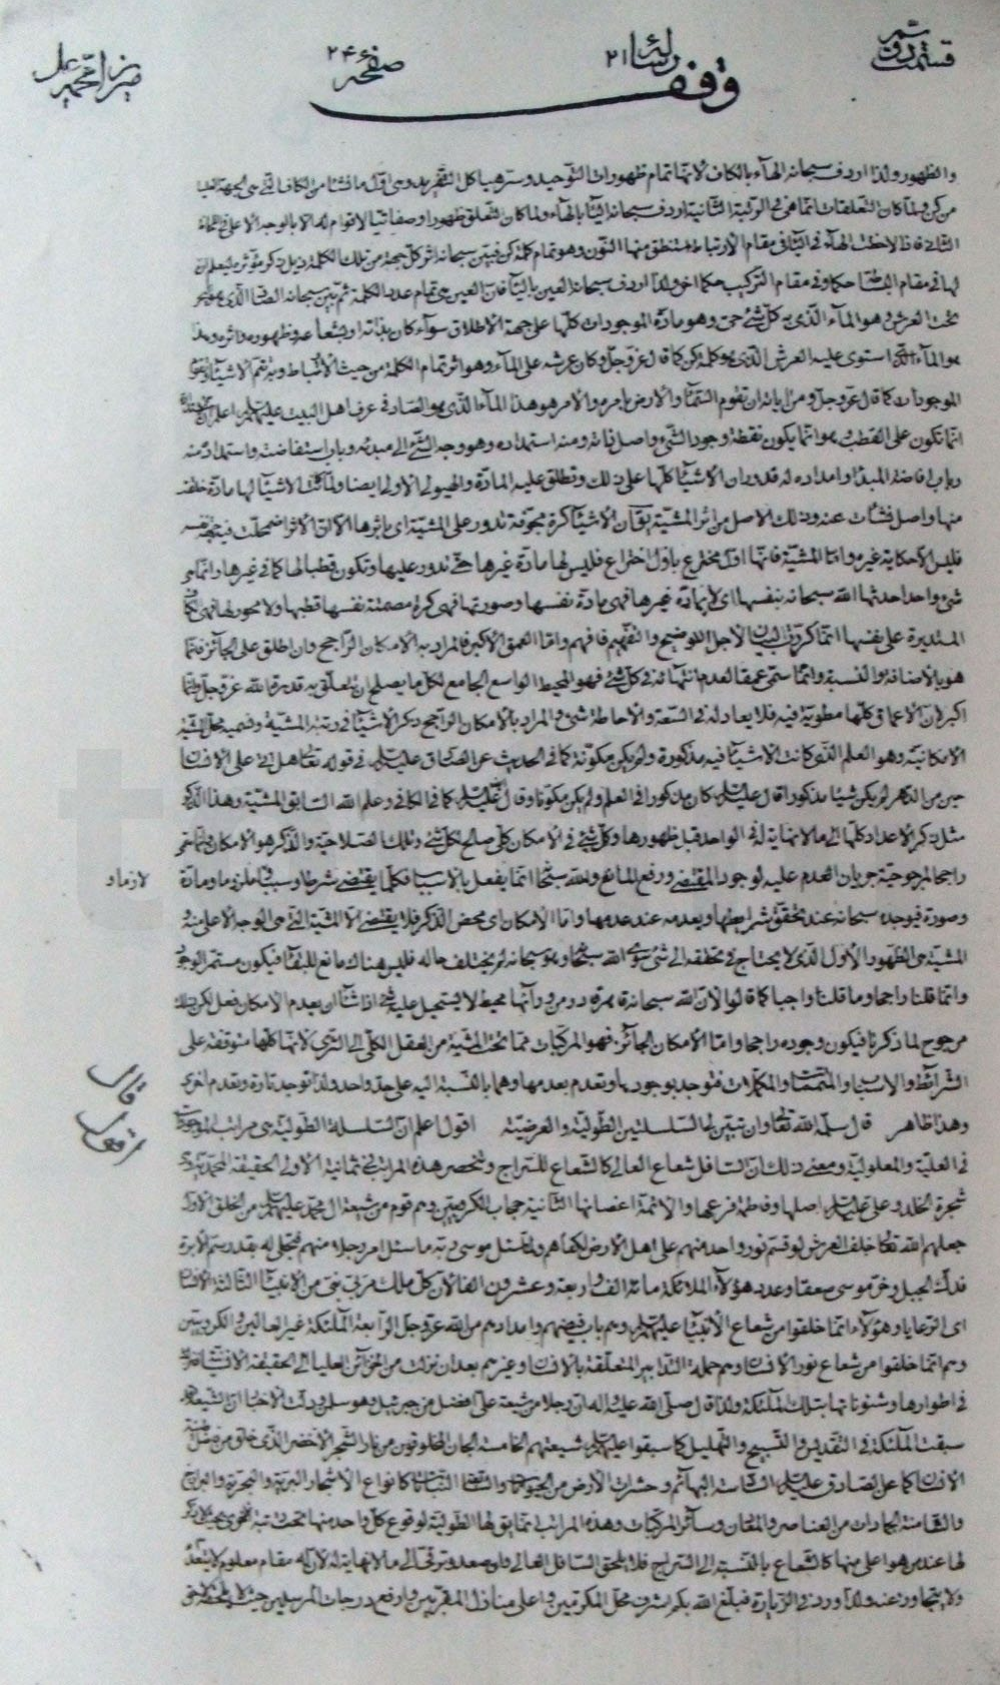 قسمت دویم
رسائل ۲۱
صفحه ۲۴
میرزا محمد علی
وقف
والظهور ولذا اردف سبحانه الهاء بالكاف لانها تمام ظهورات التوحيد وسر هياكل التفريد وهى اول ما نشا من الكاف التى هى الجهة العليا
من كن ولما كان التعلقات انما هى فى الرتبة الثانية اردف سبحانه الياء بالهاء ولما كان التعلق ظهورا وصفاتيا لا قوام له الا بالوجه الاعلى
الثانى فاذا لاحظت الهاء فى الياء فى مقام الارتباط استنطق منها النون وهو تمام كلمة كن فبين سبحانه اثر كل جهة من تلك الكلمة
لها فى مقام حكما وفى مقام التركيب حكما اخر ولذا اردف سبحانه العين بالياء فان العين هى تمام عدد الكلمة ثم بين سبحانه الصاد الذى هو بحر
تحت العرش وهو الماء الذى به كل شئ حى وهو مادة الموجودات كلها على جهة الاطلاق سواء كان بذاته او بشعاعه وظهوره واثره وهذا
هو الماء الذى استوى عليه العرش الذى هو كلمة كن كما قال عز وجل وكان عرشه على الماء وهو اثر تمام الكلمة من حيث الانبساط وبه تتم الاشياء
الموجودات كما قال عز وجل ومن اياته ان تقوم السماء والارض بامره والامر هو هذا الماء الذى هو الصاد فى عرف اهل البيت عليهم السلم اعلم ان
انما تكون على القطب وهو انما يكون نقطة وجود الشئ واصل ذاته ومنه استمداده وهو وجه الشئ الى مبدئه وباب استفاضته واستمداده منه
وباب افاضة المبدا وامداده له فدوران الاشياء كلها على ذلك وتطلق عليه المادة والهيولى الاولى ايضا ولما كانت الاشياء لها مادة خلقت
منها واصل نشات عنه وذلك الاصل من اثر المشية يق ان الاشياء كرة مجوفة تدور على المشية اى باثرها الا ان الاثر اضمحلت فيه جهة نفسه
فليس الا حكاية غيره واما المشية فانها اول مخترع باول اختراع فليس لها مادة غيرها حتى تدور عليها وتكون قطبا لها كما فى غيرها وانما هى
شئ واحد احدثها الله سبحانه بنفسها اى لا بمادة غيرها فهى مادة نفسها وصورتها فهى كرة مصمتة نفسها قطبها ولا محور لها فهى
المستديرة على نفسها انما كررت البيان لاجل التوضيح والتفهيم فافهم واما العمق الاكبر فالمراد به الامكان الراجح وان اطلق على الجائز فانما
هو بالاضافة والنسبة وانما سمى عمقا لعدم انتهائه فى كل شئ فهو المحيط الواسع الجامع لكل ما يصلح ان يتعلق به قدرة الله عز وجل وانما
اكبر لان الاعماق كلها مطوية فيه فلا يعادله فى السعة والاحاطة شئ والمراد بالامكان الراجح ذكر الاشياء فى رتبة المشية وفيه محل المشية
الامكانية وهو العلم الذى كانت الاشياء فيه مذكورة ولم يكن مكونة كما فى الحديث عن الصادق عليه السلم فى قوله تعالى هل اتى على الانسان
حين من الدهر لم يكن شيئا مذكورا قال عليه السلم كان مذكورا فى العلم ولم يكن مكونا وقال عليه السلم كما فى الكافى وعلم الله السابق المشية وهذا الذكر
مثل ذكر الاعداد كلها الى ما لا نهاية له فى الواحد قبل ظهورها وكل شئ فى الامكان كلى صالح لكل شئ وتلك الصلاحية والذكر هو الامكان وانما سمى
راجحا لمرجوحية جريان العدم عليه لوجود المقتضى ورفع المانع والله سبحانه انما يفعل بالاسباب فكلما يقتضى شرطا وسببا وملزوما ومادة
لازما و
وصورة فيوجده سبحانه عند تحقق شرائطها ويعدمه عند عدمها واما الامكان اى محض الذكر فلا يقتضى الا المشية التى هى الوجه الاعلى منه
المشية هى الظهور الاول الذى لا يحتاج فى تحققه الى شئ سوى الله سبحانه وهو سبحانه لم يختلف حاله فليس هناك مانع للبقاء فيكون مستمر الوجود
وانما قلنا راجحا وما قلنا واجبا كما قالوا لان الله سبحانه قاهر قادر ومن ورائها محيط لا يستحيل عليه شئ اذا شاء ان يعدم الامكان فعل لكن ذلك
مرجوح لما ذكرنا فيكون وجوده راجحا واما الامكان الجائز فهو المركبات مما تحت المشية من العقل الكلى الى الثرى لانها كلها متوقفة على
الشرائط والاسباب والمتممات والمكملات فتوجد بوجودها وتعدم بعدمها وهما بالنسبة اليه على حد واحد ولذا توجد تارة وتعدم اخرى
وهذا ظاهر قال سلمه الله تعالى وان تبين لى السلسلتين الطولية والعرضية اقول اعلم ان السلسلة الطولية هى مراتب الموجودات
فى العلية والمعلولية ومعنى ذلك ان السافل شعاع العالى كالشعاع للسراج وتنحصر هذه المراتب فى ثمانية الاولى الحقيقة المحمدية
شجرة الخلد وعلى عليه السلم اصلها وفاطمة فرعها والائمة اغصانها الثانية حجاب الكروبيين وهم قوم من شيعة ال محمد عليهم السلم من الخلق الاول
جعلهم الله تعالى خلف العرش لو قسم نور واحد منهم على اهل الارض لكفاهم ولما سئل موسى ربه ما سئل امر رجلا منهم فتجلى له بقدر سم الابرة
فدك الجبل وخر موسى صعقا وعدد هؤلاء الملائكة مائة الف واربعة وعشرون الفا لان كل ملك مربى نبى من الانبياء الثالثة الانسان
اى الرعايا وهؤلاء انما خلقوا من شعاع الانبياء عليهم السلم وهم باب فيضهم وامدادهم من الله عز وجل الرابعة الملئكة غير العالين والكروبيين
وهم انما خلقوا من شعاع نور الانسان وهم حملة التدابير المتعلقة بالانسان وغيرهم بعد ان نزلت من الخزائن العليا الى الحقيقة الانسانية
فى اطوارها وشئوناتها بتلك الملئكة ولذا قال صلى الله عليه واله ان رجلا من شيعة على افضل من جبرئيل وهو سلمان ودلت الاخبار ان الشيعة
سبقت الملئكة فى التقديس والتسبيح والتهليل كما سبقوا عليهم السلم شيعتهم الخامسة الجان المخلوقون من نار الشجر الاخضر الذى خلق من
الانسان كما عن الصادق عليه السلم السادسة البهائم وحشرات الارض من الحيوانات والسابعة النباتات كانواع الاشجار البرية والبحرية
والثامنة الجمادات من العناصر والمعادن وسائر المركبات وهذه المراتب انما يق لها الطولية لوقوع كل واحد منها تحت رتبة الاخرى
لها عند من هو اعلى منها كالشعاع بالنسبة الى السراج فلا يلحق السافل العالى ولو صعد وترقى الى ما لا نهاية له لان له مقام معلوم لا يتعداه
ولا يتجاوز عنه ولذا ورد فى الزيارة فبلغ الله بكم اشرف محل المكرمين واعلى منازل المقربين وارفع درجات المرسلين حيث لا يلحقه لاحق